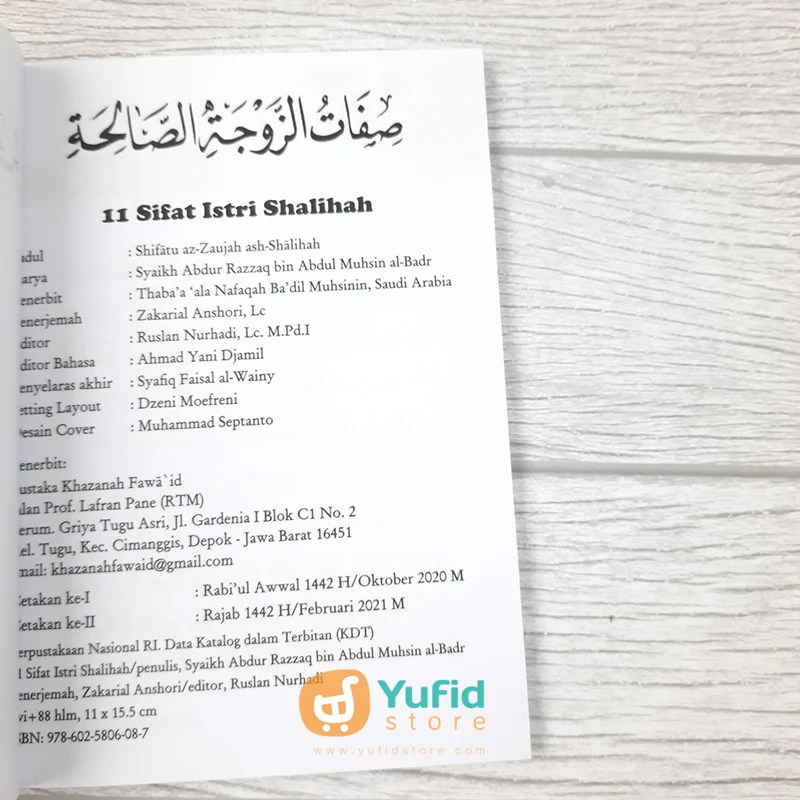 صِفَاتُ الزَّوْجَةِ الصَّالِحَةِ
11 Sifat Istri Shalihah
: Shifātu az-Zaujah ash-Shālihah
: Syaikh Abdur Razzaq bin Abdul Muhsin al-Badr
: Thaba'a 'ala Nafaqah Ba'dil Muhsinin, Saudi Arabia
: Zakarial Anshori, Lc
: Ruslan Nurhadi, Lc. M.Pd.I
Bahasa : Ahmad Yani Djamil
akhir : Syafiq Faisal al-Wainy
Layout : Dzeni Moefreni
Cover : Muhammad Septanto
Khazanah Fawā`id
Prof. Lafran Pane (RTM)
Griya Tugu Asri, Jl. Gardenia I Blok C1 No. 2
Tugu, Kec. Cimanggis, Depok - Jawa Barat 16451
khazanahfawaid@gmail.com
ke-I : Rabi'ul Awwal 1442 H/Oktober 2020 M
ke-II : Rajab 1442 H/Februari 2021 M
Nasional RI. Data Katalog dalam Terbitan (KDT)
Sifat Istri Shalihah/penulis, Syaikh Abdur Razzaq bin Abdul Muhsin al-Badr
Zakarial Anshori/editor, Ruslan Nurhadi
+88 hlm, 11 x 15.5 cm
978-602-5806-08-7
Yufid
store
www.yufidstore.com